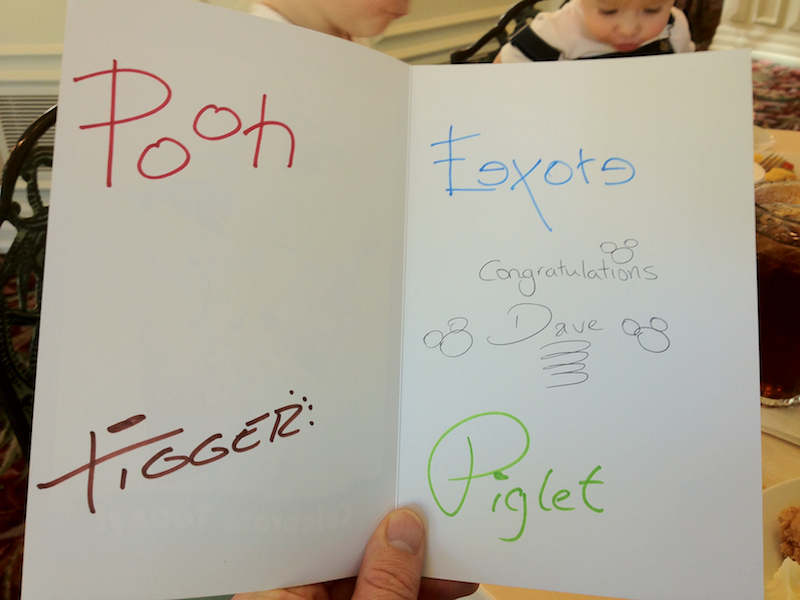 Pooh
TIGGER
Eeyore
Congratulations
Dave
Piglet